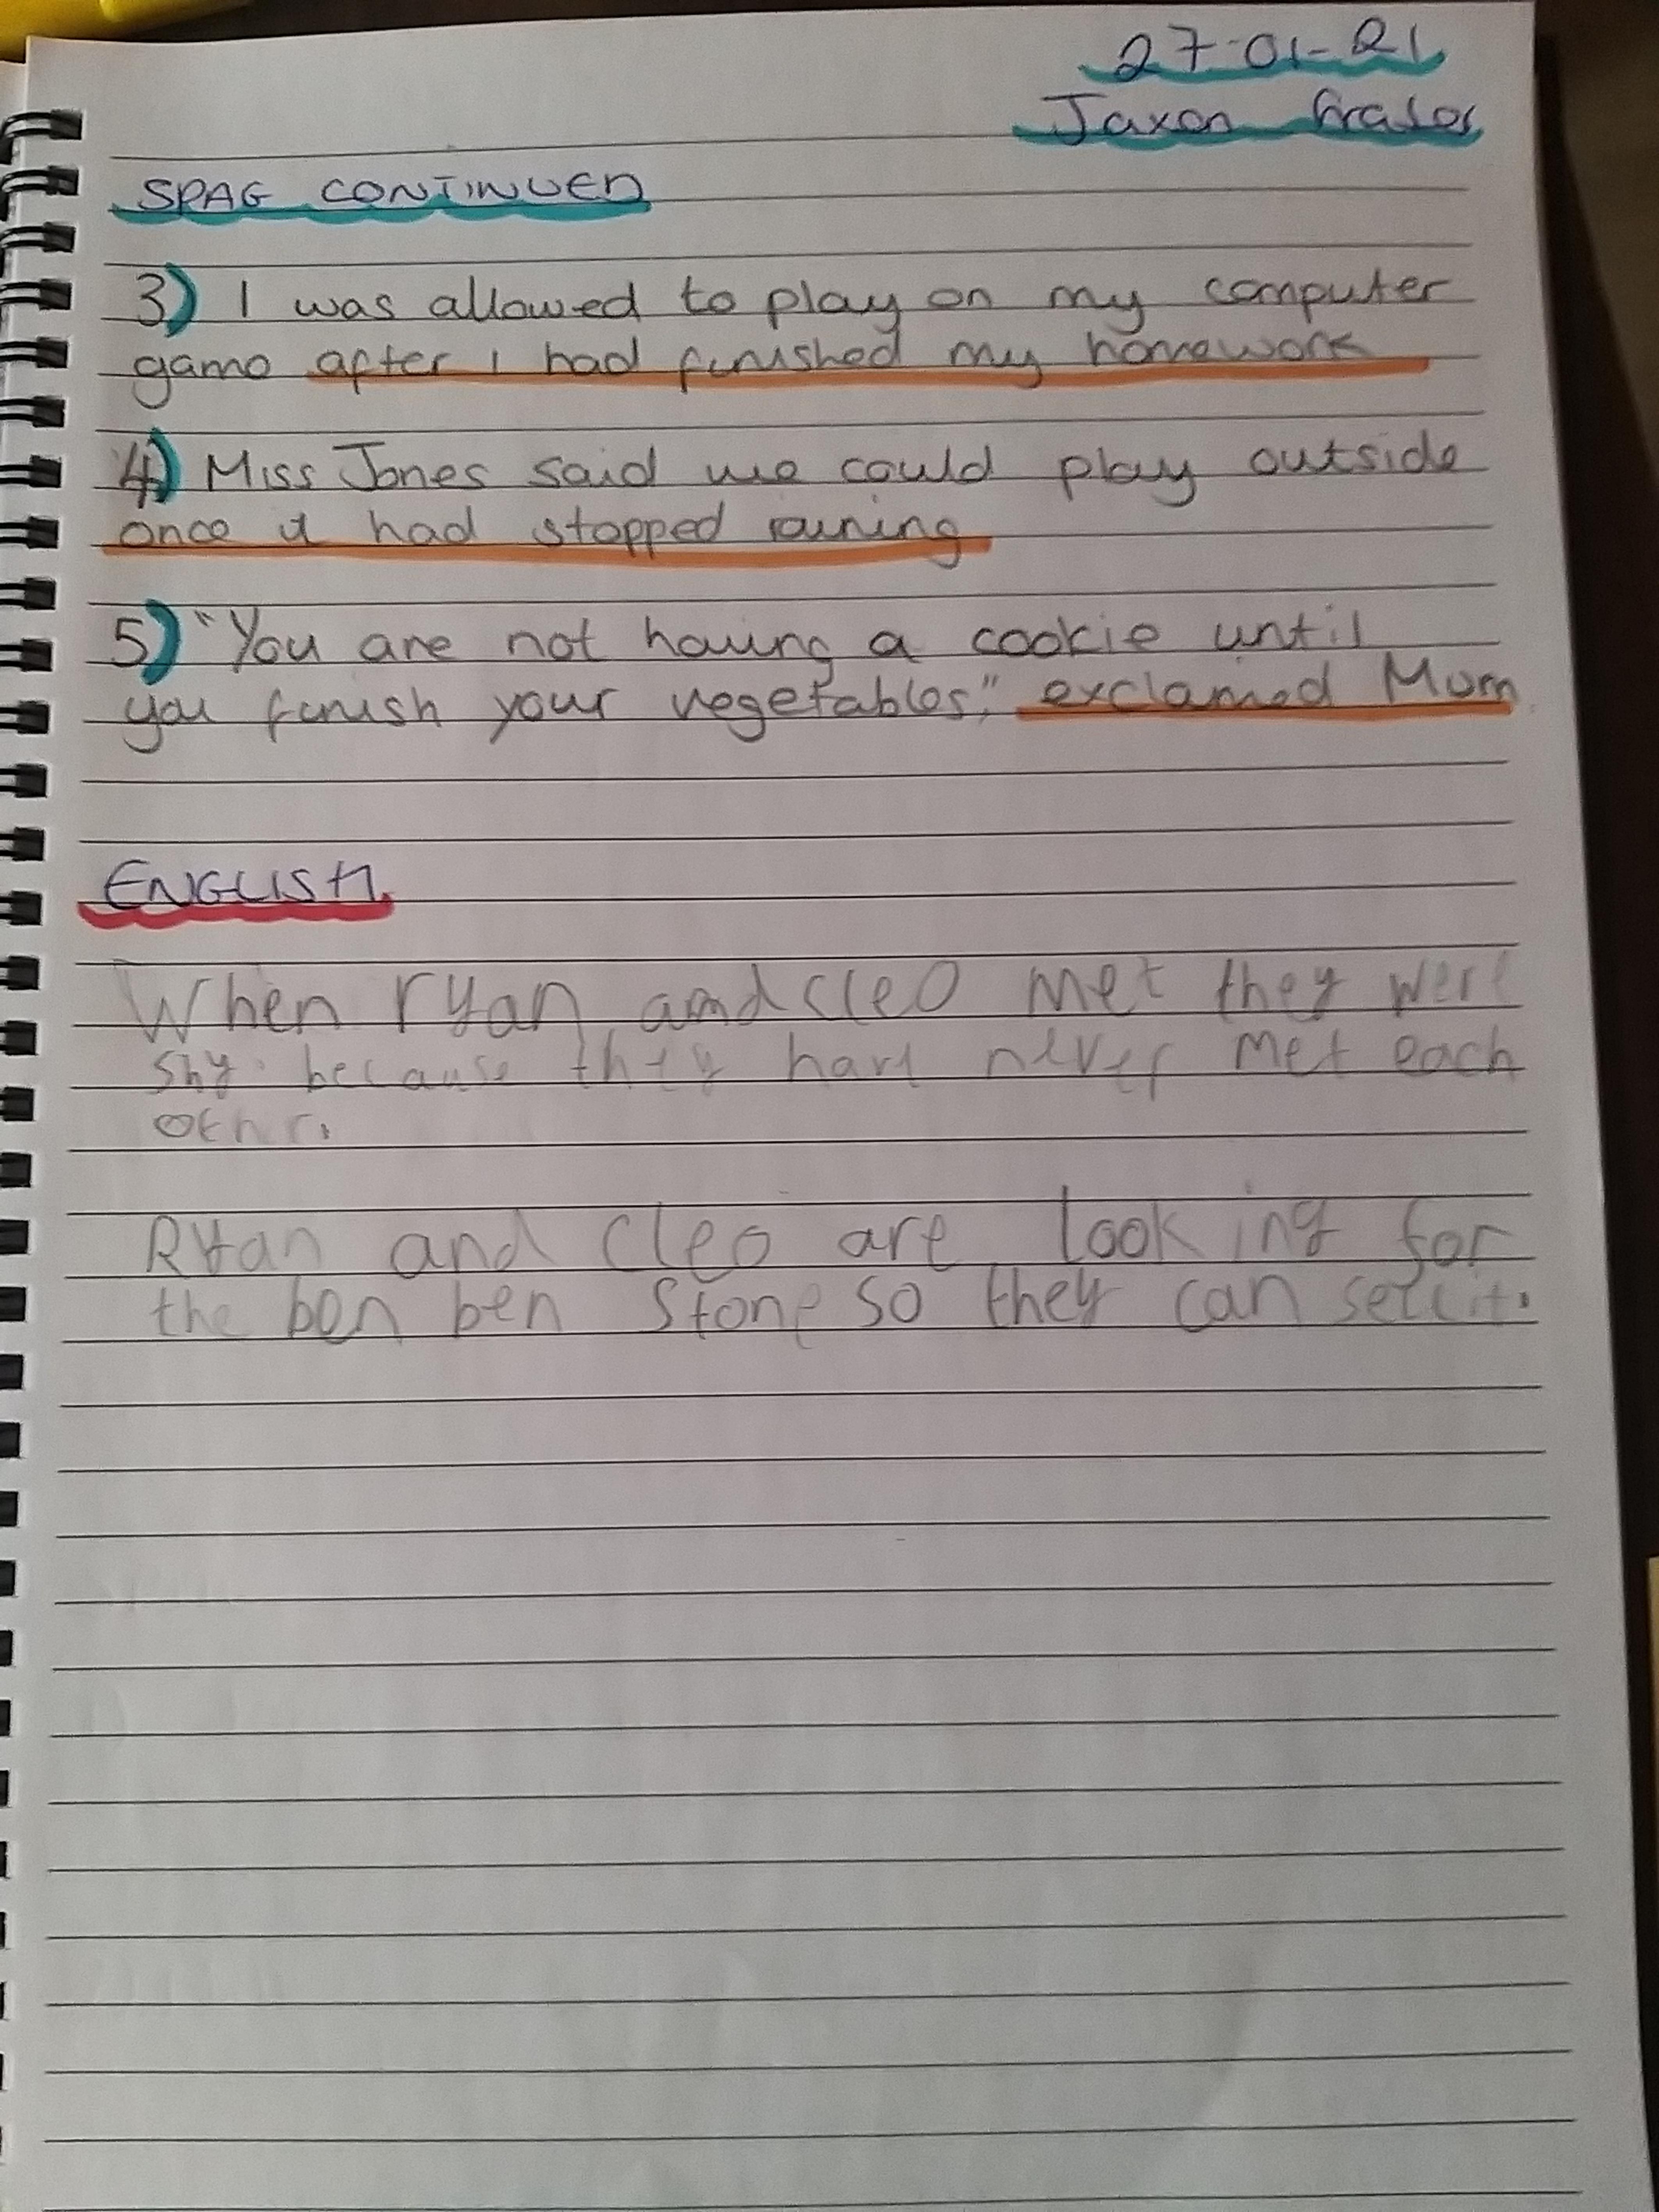 27-01-21
Jaxon
SPAG CONTINUED
3) I was allowed to play on my computer
game after I had finished my homework
4) Miss Jones said we could play outside
once it had stopped raining
5) "You are not having a cookie until
you finish your vegetables," exclaimed Mum.
ENGLISH.
When ryan and cleo met they were
shy. because they have never met each
othr.
Ryan and cleo are looking for
the ben ben stone so they can sell it.